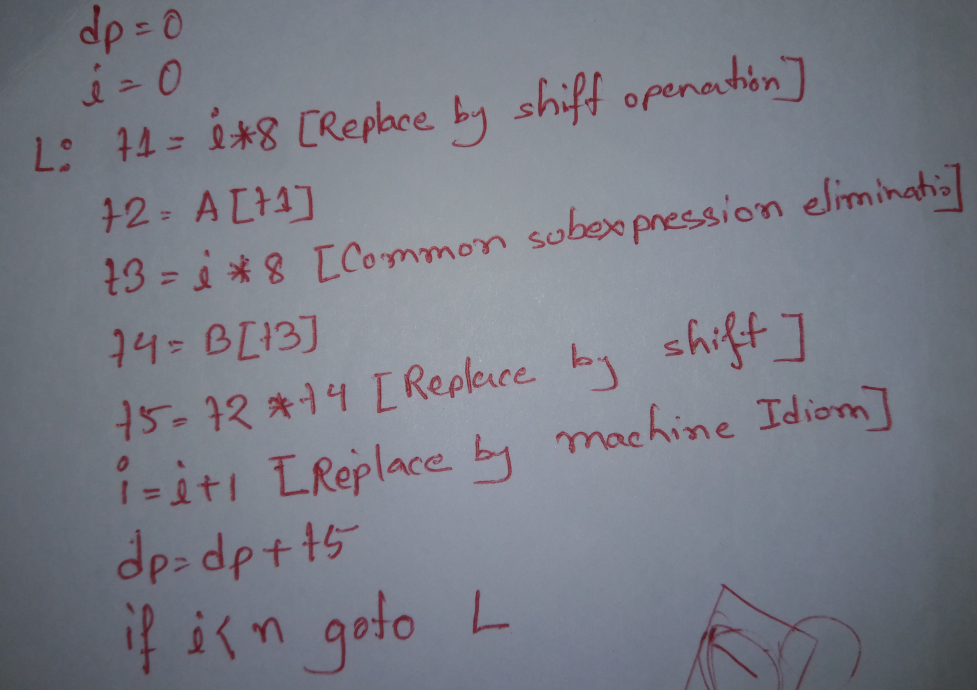 dp = 0
i = 0
L: t1 = i*8 [Replace by shift operation]
t2 = A[t1]
t3 = i * 8 [Common subexpression eliminatio]
t4 = B[t3]
t5 = t2 * t4 [Replace by shift]
i = i+1 [Replace by machine Idiom]
dp = dp + t5
if i < n goto L